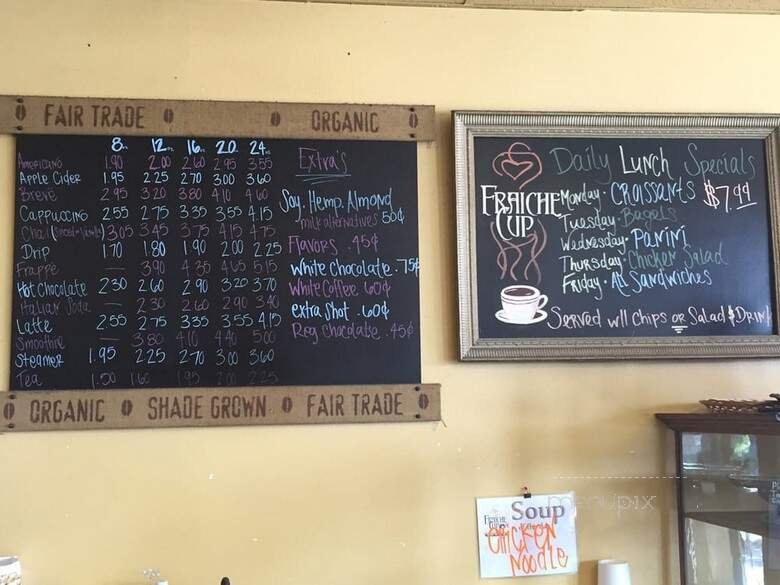 FAIR TRADE ORGANIC
8oz 12oz 16oz 20oz 24oz
Americano 1.90 2.00 2.60 2.95 3.55
Apple Cider 1.95 2.25 2.70 3.00 3.60
Breve 2.95 3.20 3.80 4.10 4.60
Cappuccino 2.55 2.75 3.35 3.55 4.15
Chai 3.05 3.45 3.75 4.15 4.75
Drip 1.70 1.80 1.90 2.00 2.25
Frappe — 3.90 4.35 4.65 5.15
Hot Chocolate 2.30 2.60 2.90 3.20 3.70
Italian Soda — 2.30 2.60 2.90 3.40
Latte 2.55 2.75 3.35 3.55 4.15
Smoothie — 3.80 4.10 4.40 5.00
Steamer 1.95 2.25 2.70 3.00 3.60
Tea 1.50 1.60 1.95 2.00 2.25
Extra's
Soy, Hemp, Almond
milk alternatives 50¢
Flavors .45¢
White Chocolate .75¢
White Coffee 60¢
extra shot .60¢
Reg Chocolate .45¢
ORGANIC SHADE GROWN FAIR TRADE
FRAICHE
CUP
Daily Lunch Specials
$7.99
Monday - Croissants
Tuesday - Bagels
Wednesday - Panini
Thursday - Chicken Salad
Friday - All Sandwiches
Served w/ Chips or Salad & Drink
FRAICHE
CUP
Soup
Chicken
Noodle
menupix